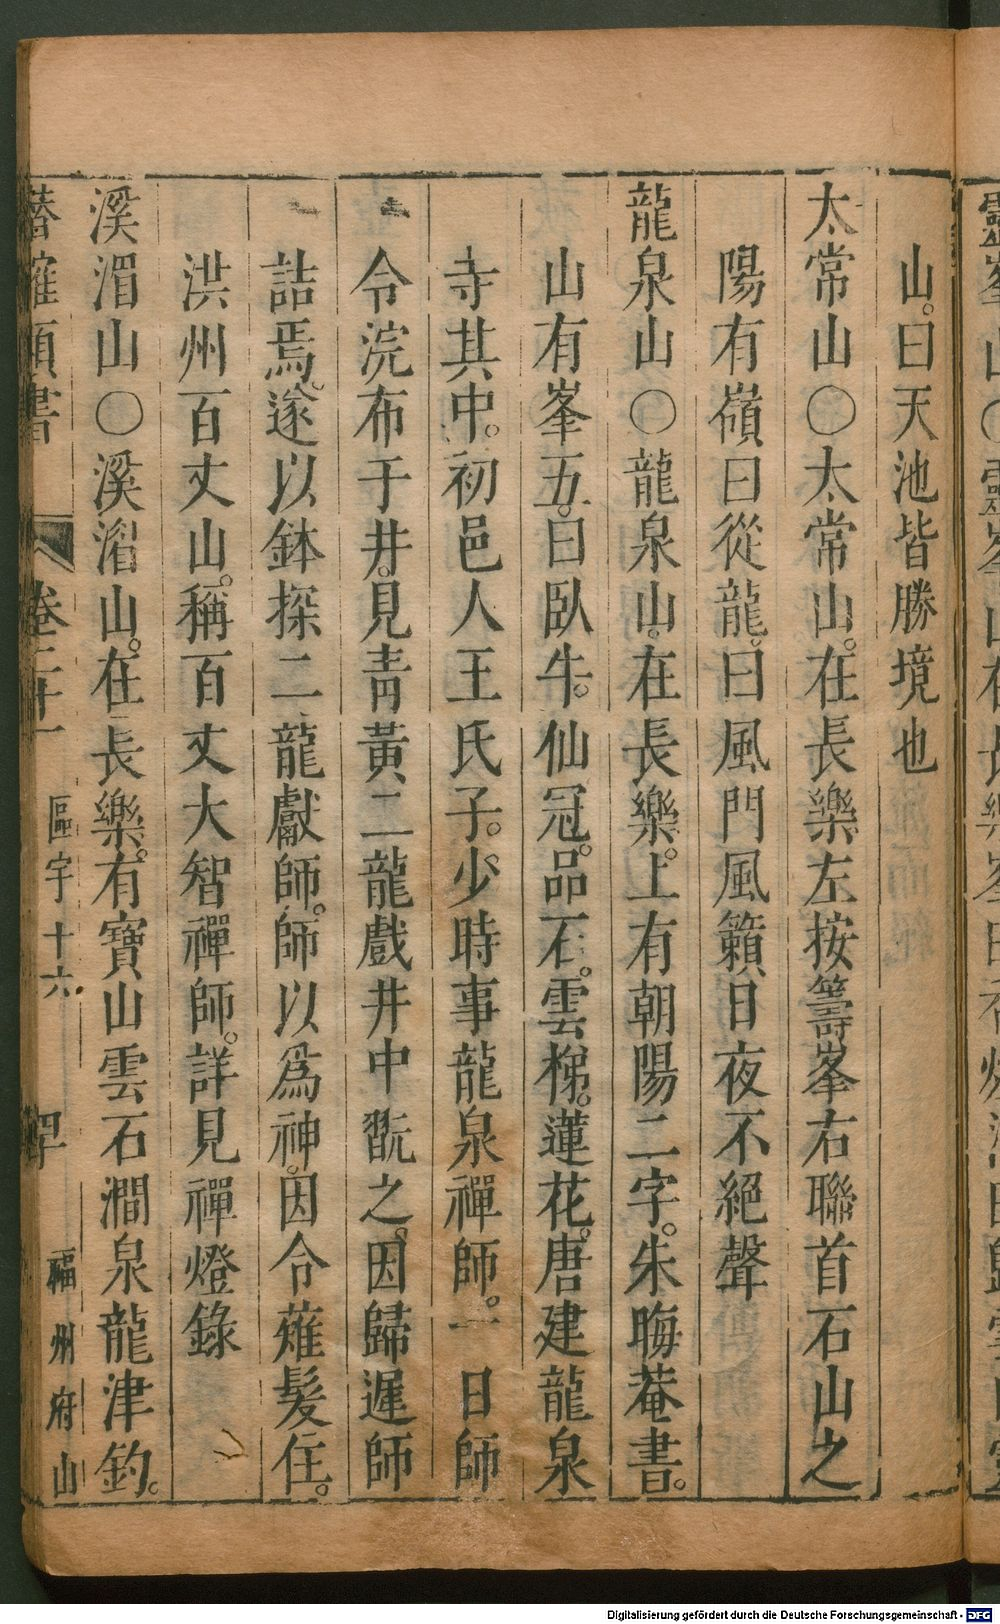 山。曰天池皆勝境也
太常山○太常山。在長樂左按籌峯右聯首石山之
陽有嶺曰從龍。曰風門風籟日夜不絕聲
龍泉山○龍泉山。在長樂。上有朝陽二字。朱晦菴書。
山有峯五。曰臥牛。仙冠。品石。雲梯。蓮花。唐建龍泉
寺其中。初邑人王氏子。少時事龍泉禪師。一日師
令浣布于井。見青黃二龍戲井中翫之。因歸遲師
詰焉。遂以鉢探二龍獻師。師以爲神。因令薙髮住。
洪州百丈山。稱百丈大智禪師。詳見禪燈錄
溪湄山○溪湄山。在長樂。有寶山雲石澗泉龍津釣。
卷二十一 區宇十六 福州府山
Digitalisierung gefördert durch die Deutsche Forschungsgemeinschaft - DFG